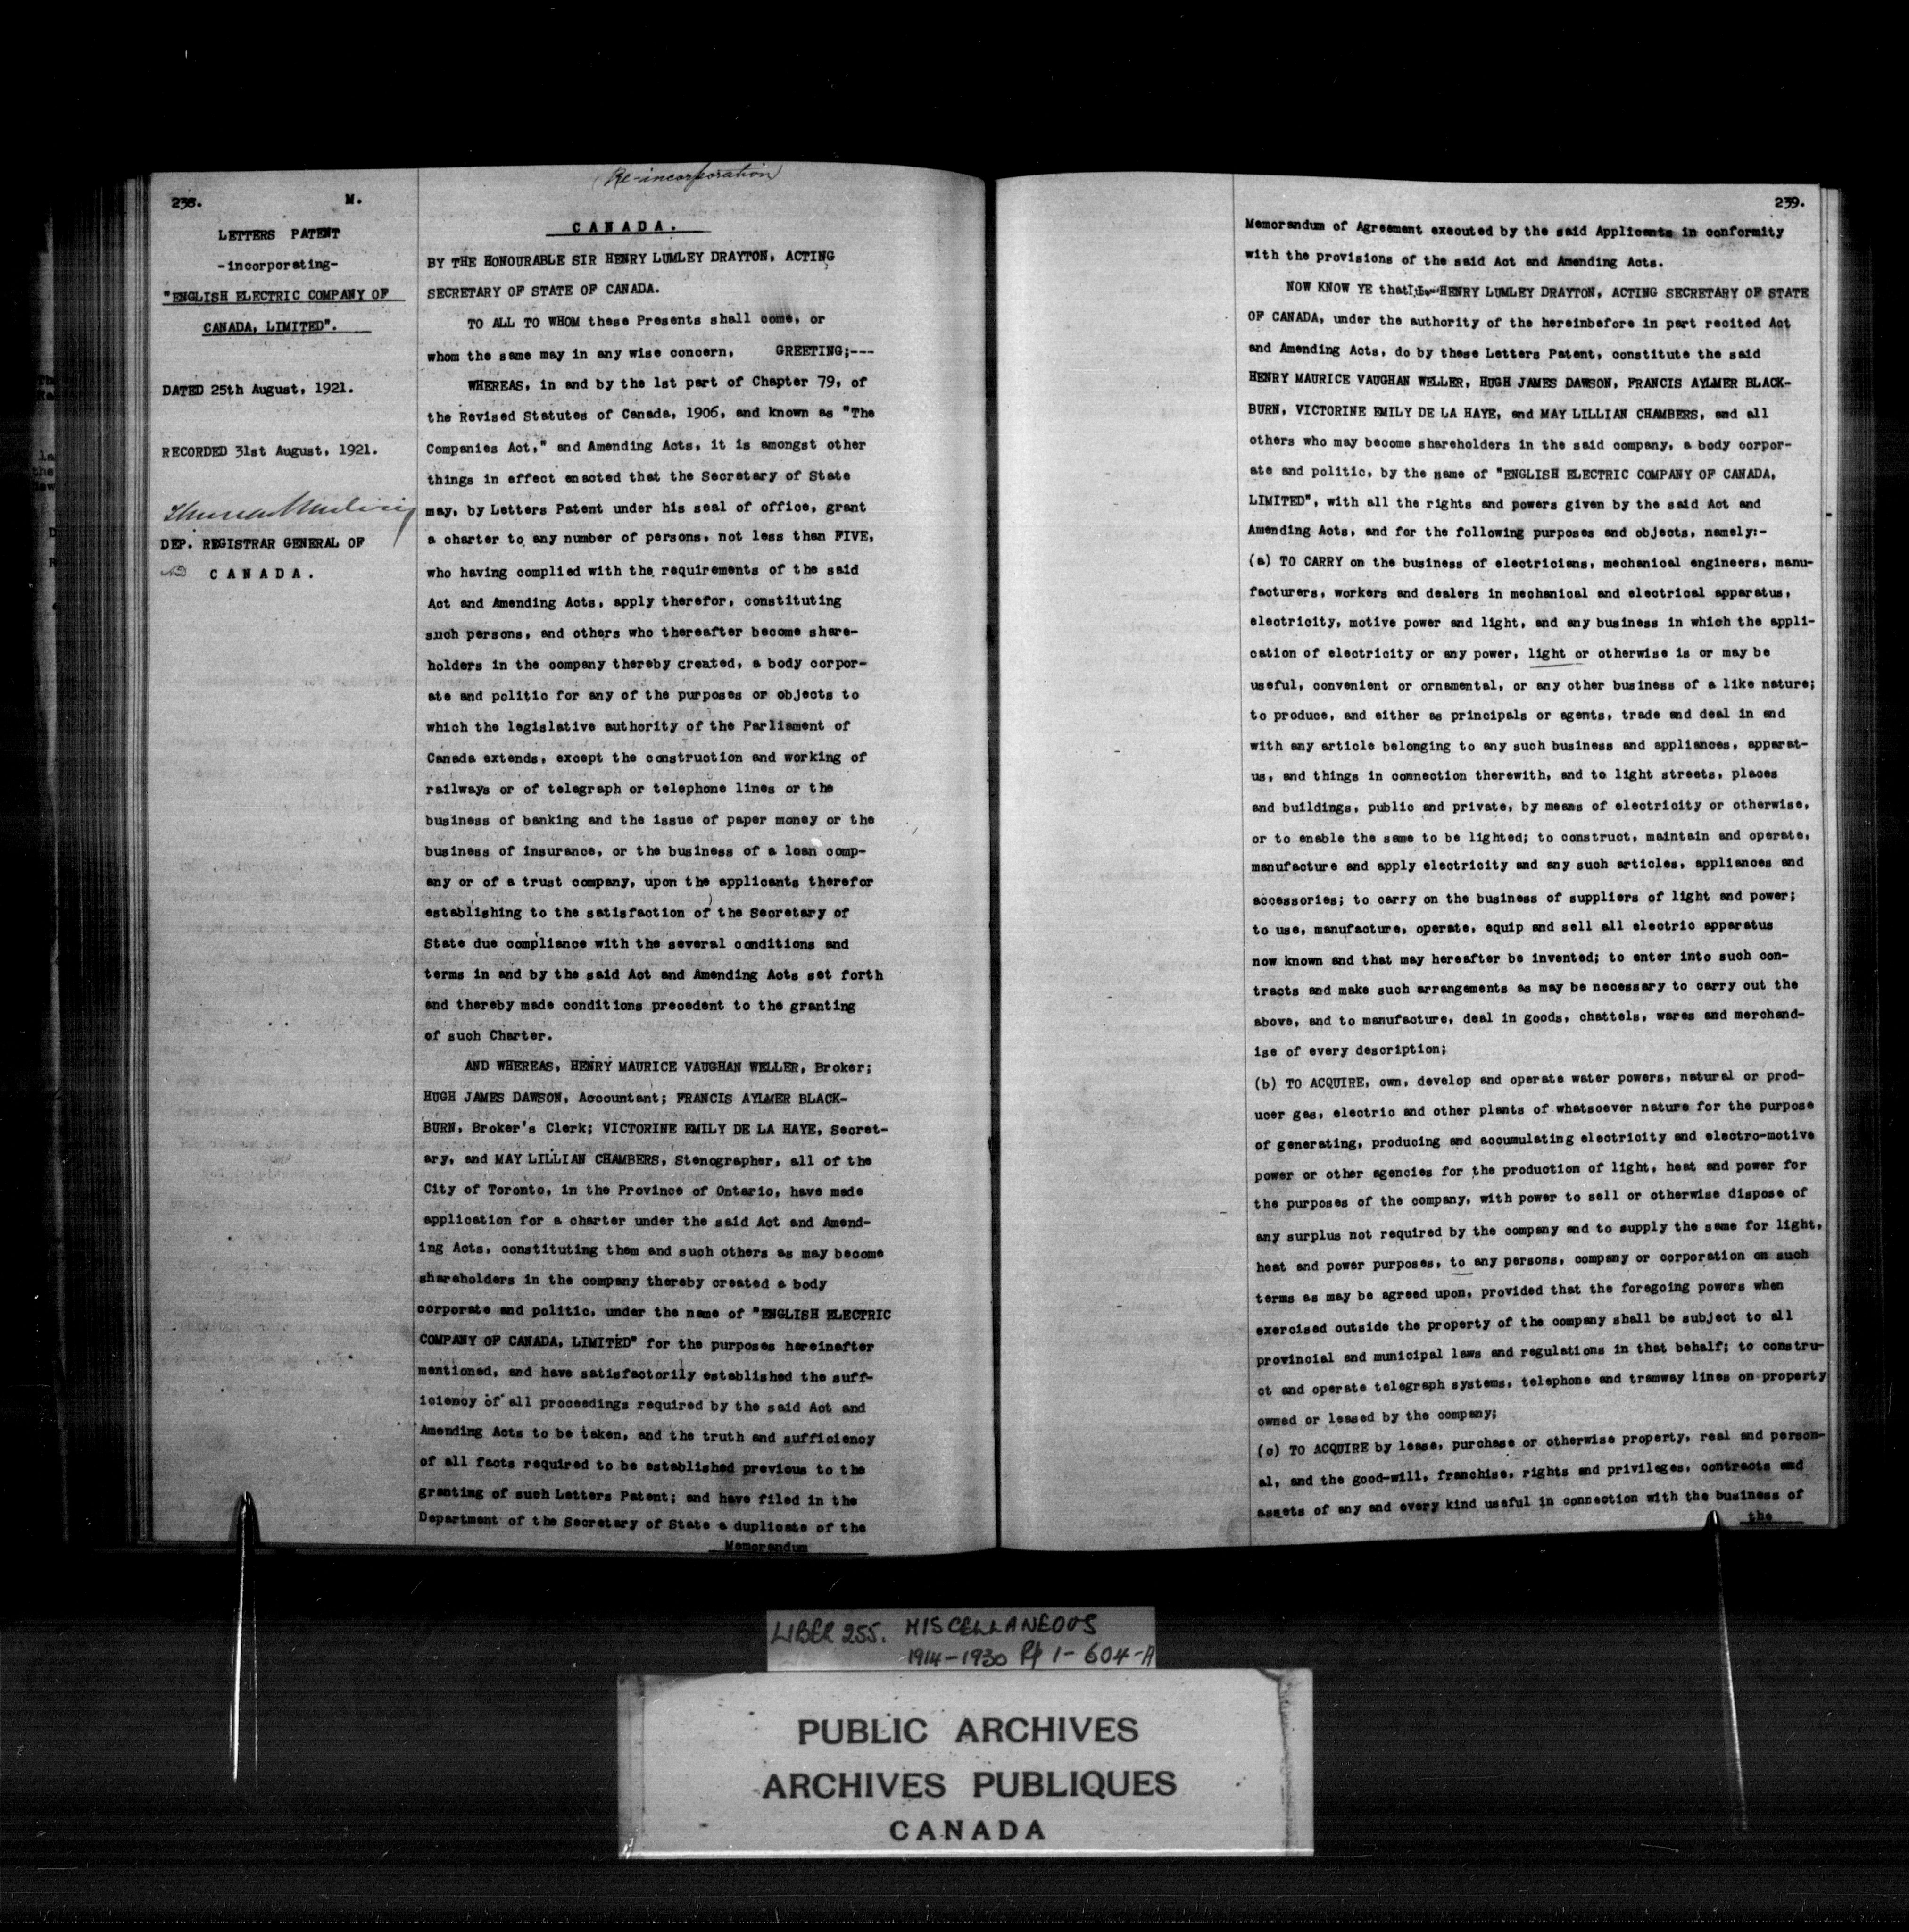 (Re-incorporation)
238. M.
LETTERS PATENT
-incorporating-
"ENGLISH ELECTRIC COMPANY OF
CANADA, LIMITED".
DATED 25th August, 1921.
RECORDED 31st August, 1921.
DEP. REGISTRAR GENERAL OF
CANADA.
CANADA.
BY THE HONOURABLE SIR HENRY LUMLEY DRAYTON, ACTING
SECRETARY OF STATE OF CANADA.
TO ALL TO WHOM these Presents shall come, or
whom the same may in any wise concern, GREETING;---
WHEREAS, in and by the 1st part of Chapter 79, of
the Revised Statutes of Canada, 1906, and known as "The
Companies Act," and Amending Acts, it is amongst other
things in effect enacted that the Secretary of State
may, by Letters Patent under his seal of office, grant
a charter to any number of persons, not less than FIVE,
who having complied with the requirements of the said
Act and Amending Acts, apply therefor, constituting
such persons, and others who thereafter become share-
holders in the company thereby created, a body corpor-
ate and politic for any of the purposes or objects to
which the legislative authority of the Parliament of
Canada extends, except the construction and working of
railways or of telegraph or telephone lines or the
business of banking and the issue of paper money or the
business of insurance, or the business of a loan comp-
any or of a trust company, upon the applicants therefor
establishing to the satisfaction of the Secretary of
State due compliance with the several conditions and
terms in and by the said Act and Amending Acts set forth
and thereby made conditions precedent to the granting
of such Charter.
AND WHEREAS, HENRY MAURICE VAUGHAN WELLER, Broker;
HUGH JAMES DAWSON, Accountant; FRANCIS AYLMER BLACK-
BURN, Broker's Clerk; VICTORINE EMILY DE LA HAYE, Secret-
ary, and MAY LILLIAN CHAMBERS, Stenographer, all of the
City of Toronto, in the Province of Ontario, have made
application for a charter under the said Act and Amend-
ing Acts, constituting them and such others as may become
shareholders in the company thereby created a body
corporate and politic, under the name of "ENGLISH ELECTRIC
COMPANY OF CANADA, LIMITED" for the purposes hereinafter
mentioned, and have satisfactorily established the suff-
iciency of all proceedings required by the said Act and
Amending Acts to be taken, and the truth and sufficiency
of all facts required to be established previous to the
granting of such Letters Patent; and have filed in the
Department of the Secretary of State a duplicate of the
Memorandum
239.
Memorandum of Agreement executed by the said Applicants in conformity
with the provisions of the said Act and Amending Acts.
NOW KNOW YE that HENRY LUMLEY DRAYTON, ACTING SECRETARY OF STATE
OF CANADA, under the authority of the hereinbefore in part recited Act
and Amending Acts, do by these Letters Patent, constitute the said
HENRY MAURICE VAUGHAN WELLER, HUGH JAMES DAWSON, FRANCIS AYLMER BLACK-
BURN, VICTORINE EMILY DE LA HAYE, and MAY LILLIAN CHAMBERS, and all
others who may become shareholders in the said company, a body corpor-
ate and politic, by the name of "ENGLISH ELECTRIC COMPANY OF CANADA,
LIMITED", with all the rights and powers given by the said Act and
Amending Acts, and for the following purposes and objects, namely:-
(a) TO CARRY on the business of electricians, mechanical engineers, manu-
facturers, workers and dealers in mechanical and electrical apparatus,
electricity, motive power and light, and any business in which the appli-
cation of electricity or any power, light or otherwise is or may be
useful, convenient or ornamental, or any other business of a like nature;
to produce, and either as principals or agents, trade and deal in and
with any article belonging to any such business and appliances, apparat-
us, and things in connection therewith, and to light streets, places
and buildings, public and private, by means of electricity or otherwise,
or to enable the same to be lighted; to construct, maintain and operate,
manufacture and apply electricity and any such articles, appliances and
accessories; to carry on the business of suppliers of light and power;
to use, manufacture, operate, equip and sell all electric apparatus
now known and that may hereafter be invented; to enter into such con-
tracts and make such arrangements as may be necessary to carry out the
above, and to manufacture, deal in goods, chattels, wares and merchand-
ise of every description;
(b) TO ACQUIRE, own, develop and operate water powers, natural or prod-
ucer gas, electric and other plants of whatsoever nature for the purpose
of generating, producing and accumulating electricity and electro-motive
power or other agencies for the production of light, heat and power for
the purposes of the company, with power to sell or otherwise dispose of
any surplus not required by the company and to supply the same for light,
heat and power purposes, to any persons, company or corporation on such
terms as may be agreed upon, provided that the foregoing powers when
exercised outside the property of the company shall be subject to all
provincial and municipal laws and regulations in that behalf; to constru-
ct and operate telegraph systems, telephone and tramway lines on property
owned or leased by the company;
(c) TO ACQUIRE by lease, purchase or otherwise property, real and person-
al, and the good-will, franchise, rights and privileges, contracts and
assets of any and every kind useful in connection with the business of
the
LIBER 255. MISCELLANEOUS
1914-1930 Pp 1-604-A
PUBLIC ARCHIVES
ARCHIVES PUBLIQUES
CANADA